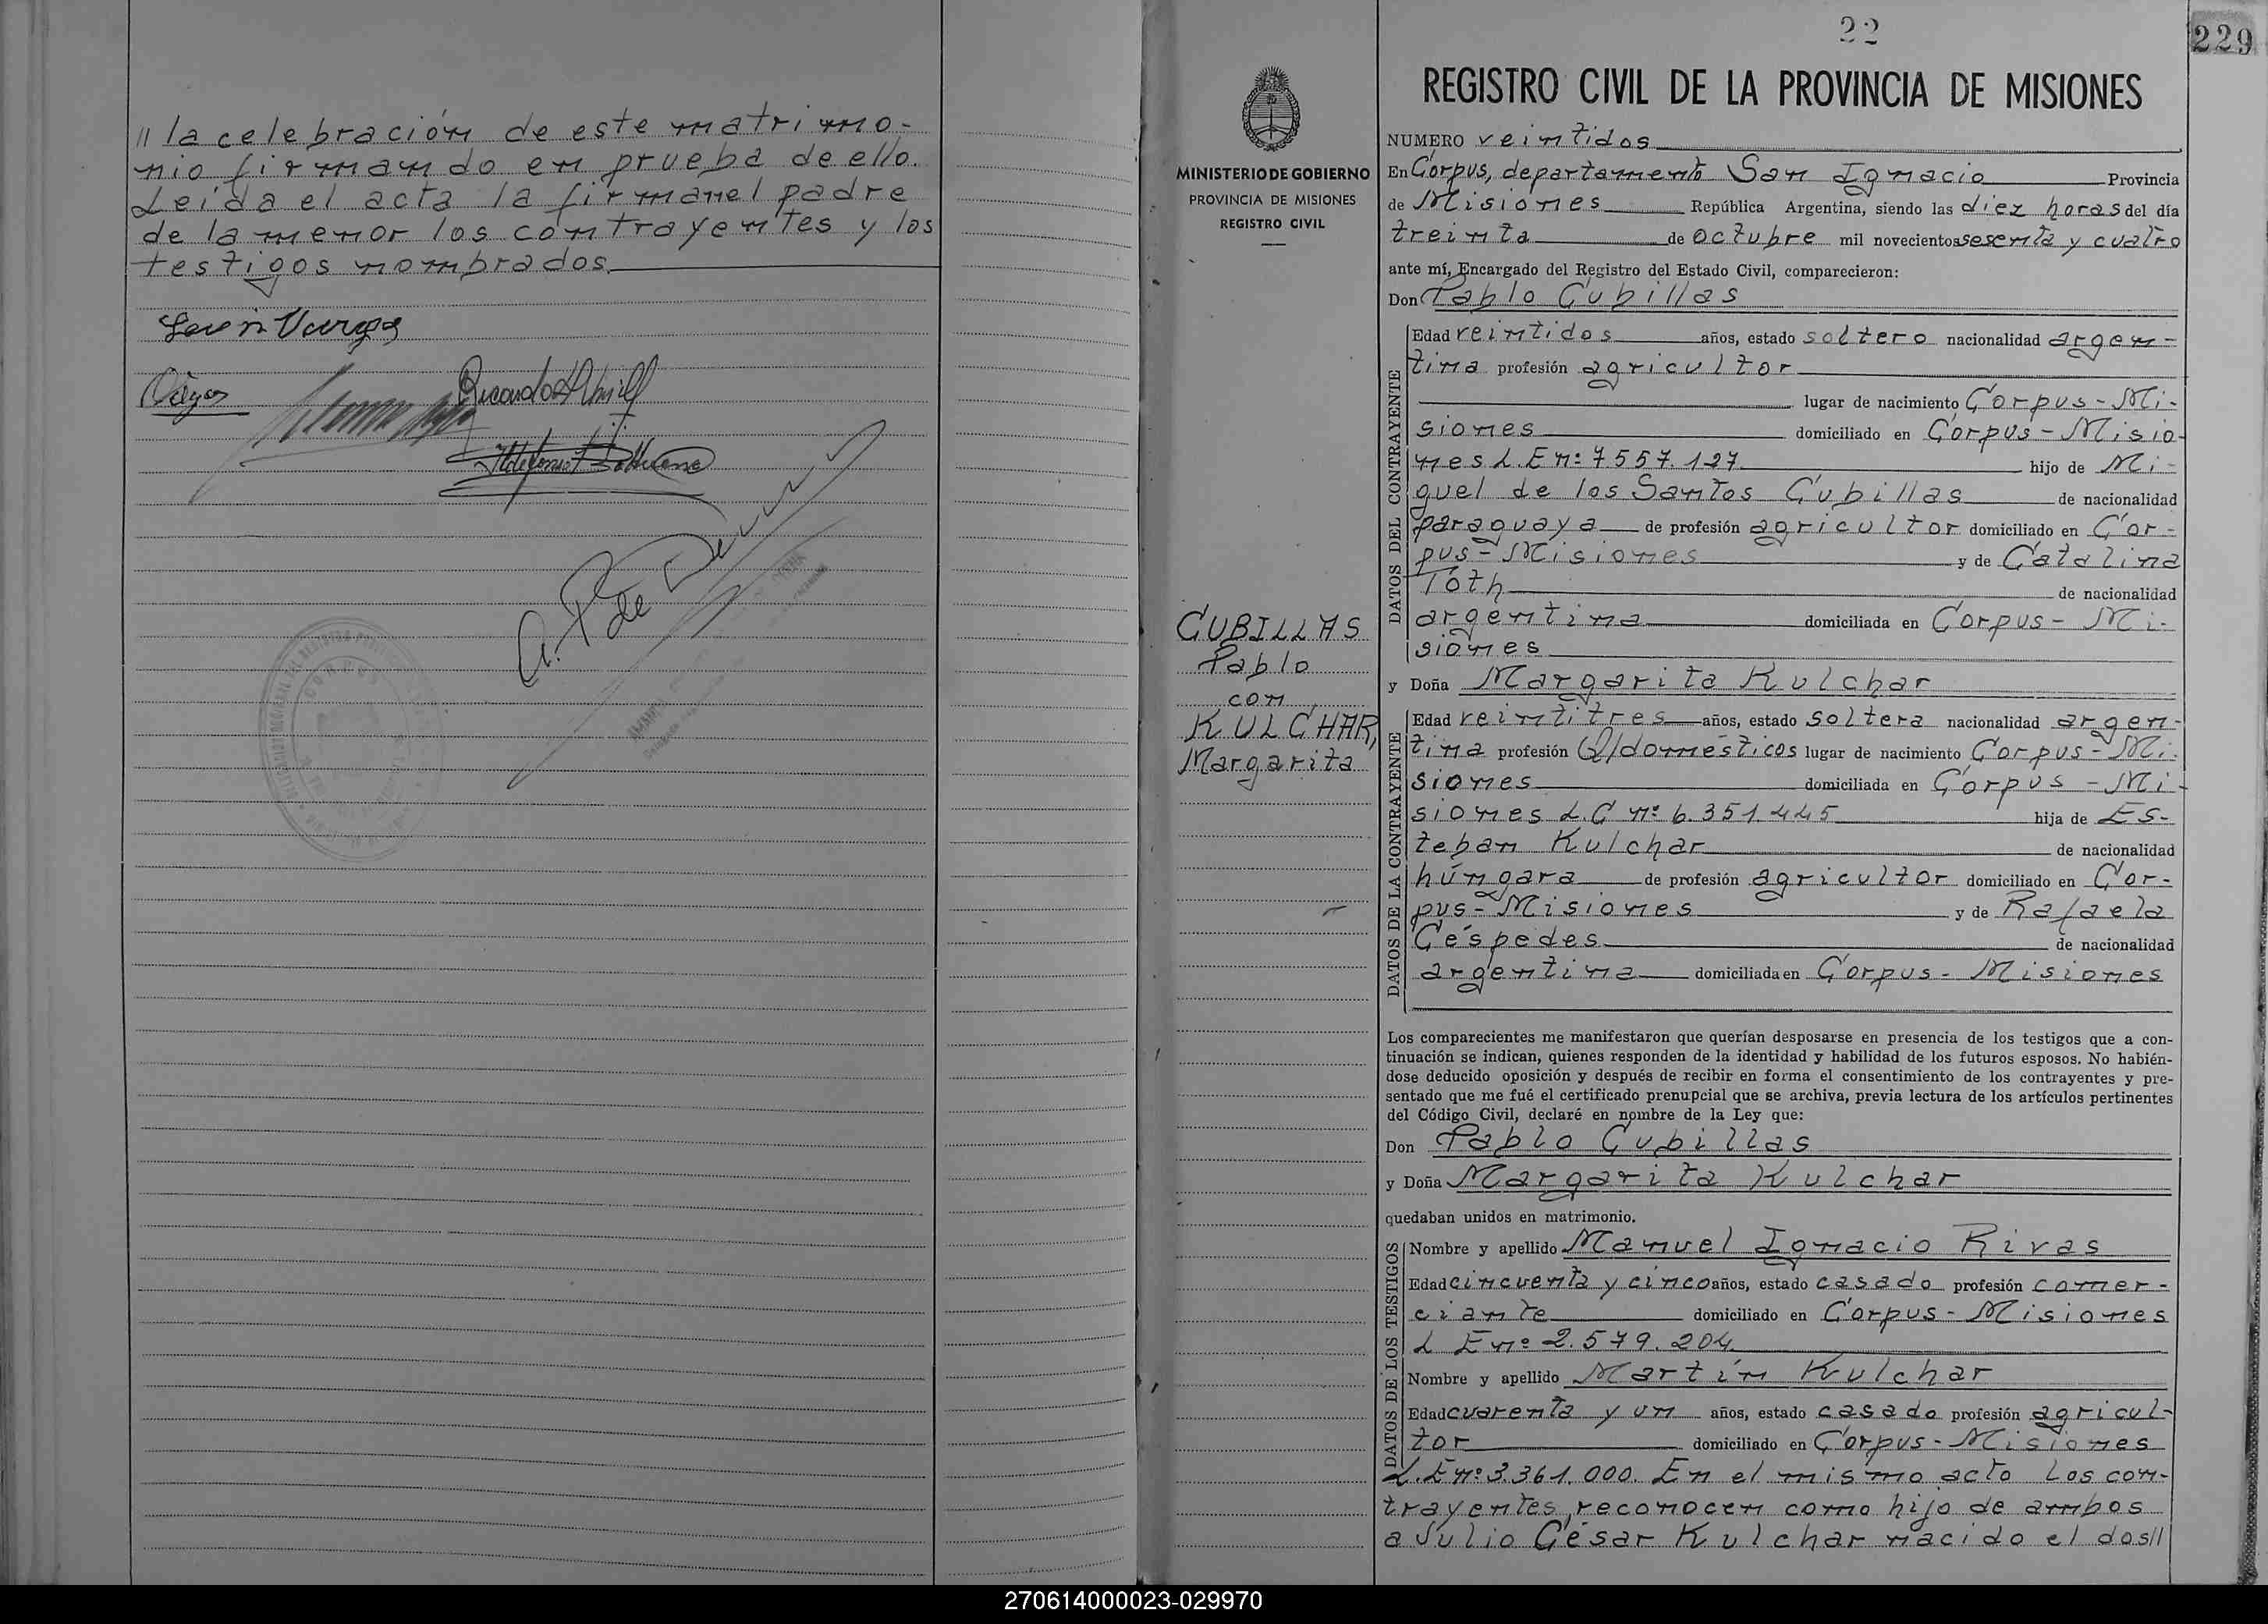 // la celebración de este matrimo-
nio firmando en prueba de ello.
Leída el acta la firman el padre
de la menor los contrayentes y los
testigos nombrados.
22
229
REGISTRO CIVIL DE LA PROVINCIA DE MISIONES
MINISTERIO DE GOBIERNO
PROVINCIA DE MISIONES
REGISTRO CIVIL
CUBILLAS
Pablo
con
KULCHAR,
Margarita
NUMERO veintidos
En Corpus, departamento San Ignacio Provincia
de Misiones República Argentina, siendo las diez horas del día
treinta de octubre mil novecientos sesenta y cuatro
ante mí, Encargado del Registro del Estado Civil, comparecieron:
Don Pablo Cubillas
DATOS DEL CONTRAYENTE
Edad veintidos años, estado soltero nacionalidad argen-
tina profesión agricultor
lugar de nacimiento Corpus - Mi-
siones domiciliado en Corpus - Misio-
nes L.E nº 7557.127 hijo de Mi-
guel de los Santos Cubillas de nacionalidad
paraguaya de profesión agricultor domiciliado en Cor-
pus - Misiones y de Catalina
Toth de nacionalidad
argentina domiciliada en Corpus - Mi-
siones
y Doña Margarita Kulchar
DATOS DE LA CONTRAYENTE
Edad veintitres años, estado soltera nacionalidad argen-
tina profesión Q/domésticos lugar de nacimiento Corpus - Mi-
siones domiciliada en Corpus - Mi-
siones L.C nº 6.351.445 hija de Es-
teban Kulchar de nacionalidad
húngara de profesión agricultor domiciliado en Cor-
pus - Misiones y de Rafaela
Céspedes de nacionalidad
argentina domiciliada en Corpus - Misiones
Los comparecientes me manifestaron que querían desposarse en presencia de los testigos que a con-
tinuación se indican, quienes responden de la identidad y habilidad de los futuros esposos. No habién-
dose deducido oposición y después de recibir en forma el consentimiento de los contrayentes y pre-
sentado que me fué el certificado prenupcial que se archiva, previa lectura de los artículos pertinentes
del Código Civil, declaré en nombre de la Ley que:
Don Pablo Cubillas
y Doña Margarita Kulchar
quedaban unidos en matrimonio.
DATOS DE LOS TESTIGOS
Nombre y apellido Manuel Ignacio Rivas
Edad cincuenta y cinco años, estado casado profesión comer-
ciante domiciliado en Corpus - Misiones
L E nº 2.579.204
Nombre y apellido Martín Kulchar
Edad cuarenta y un años, estado casado profesión agricul-
tor domiciliado en Corpus - Misiones
L.E nº 3.361.000. En el mismo acto los con-
trayentes, reconocen como hijo de ambos
a Julio César Kulchar nacido el dos//
270614000023-029970